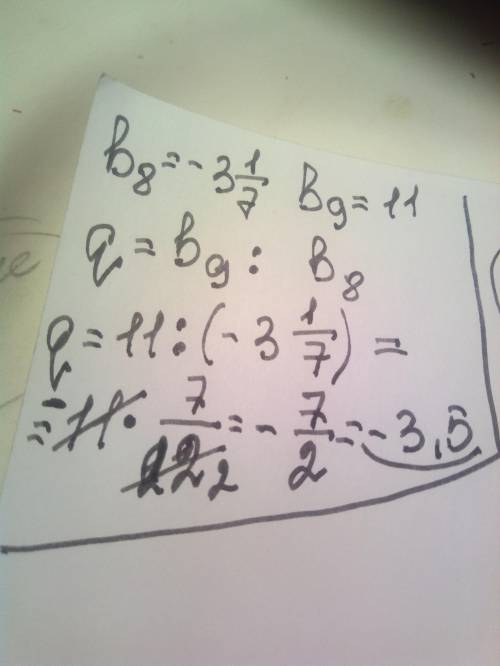 b₈ = -3 1/7 b₉ = 11
q = b₉ : b₈
q = 11 : (-3 1/7) =
= -11 · 7/22 2 = -7/2 = -3,5